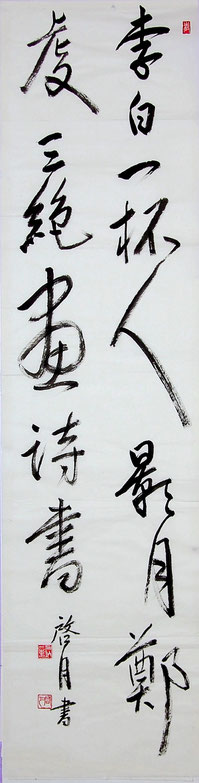 李白一杯人影月鄭
虔三絶画詩書
啓月書